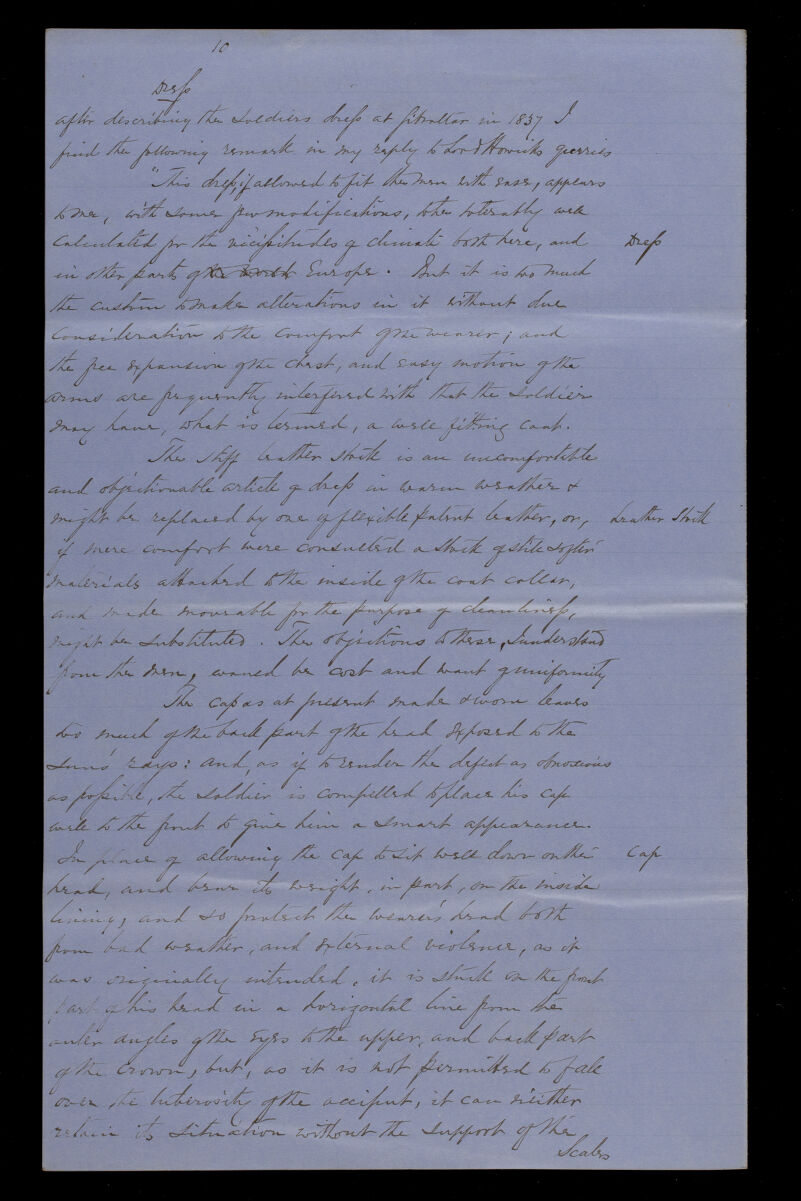 10
Dress
after describing the soldiers dress at Gibraltar in 1837 I
find the following remark in my reply to Lord Howicks querries
"This dress, if allowed to fit the men with ease, appears
to me, with some few modifications, to be tolerably well
Calculated for the vicissitudes of climate both here, and
Dress
in other parts of the world Europe. But it is too much
the custom to make alterations in it without due
Consideration to the Comfort of the wearer; and
the free expansion of the chest, and easy motion of the
arms are frequently interfered with that the soldier
may have, what is termed, a well fitting coat.
The stiff leather stock is an uncomfortable
and objectionable article of dress in warm weather &
might be replaced by one of flexible patent leather, or,
Leather Stock
if mere comfort were consulted a stock of still softer
materials attached to the inside of the coat collar,
and made moveable for the purpose of cleanliness,
might be substituted. The objections to these, I understand
from the men, would be cost and want of uniformity
The cap as at present made & worn leaves
too much of the back part of the head exposed to the
sun's rays: and, as if to render the defect as obnoxious
as possible, the soldier is compelled to place his cap
well to the front to give him a smart appearance.
In place of allowing the cap to sit well down on the
Cap
head, and bear its weight, in part, on the inside
lining, and so protect the wearer's head both
from bad weather, and external violence, as it
was originally intended, it is stuck on the front
part of his head in a horizontal line from the
outer angles of the eyes to the upper, and back part
of the crown, but, as it is not permitted to fall
over the tuberosity of the occiput, it can neither
retain its situation without the support of the
Scales